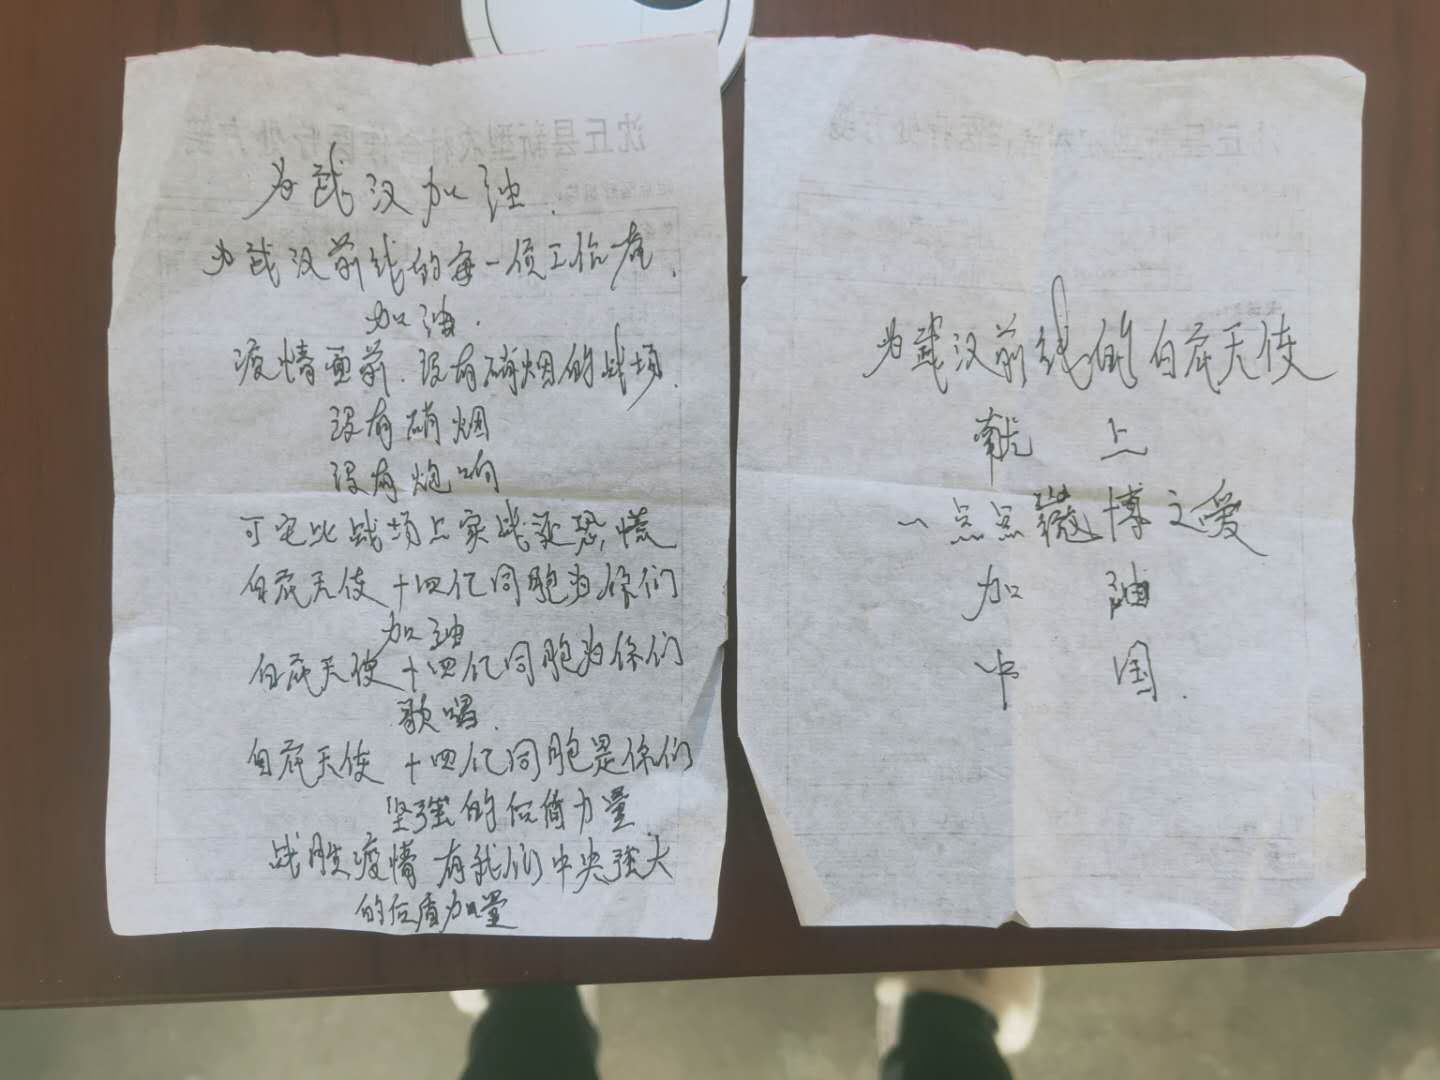 为武汉加油.
为武汉前线的每一位工作者.
加油.
疫情面前.没有硝烟的战场.
没有硝烟
没有炮响
可它比战场上实战还恐慌
白衣天使 十四亿同胞为你们
加油
白衣天使 十四亿同胞为你们
歌唱.
白衣天使 十四亿同胞是你们
坚强的后盾力量.
战胜疫情 有我们中央强大
的后盾力量
为武汉前线的白衣天使
献上
一点点薇博之爱
加油
中国.
沈丘县新型农村合作医疗处方笺